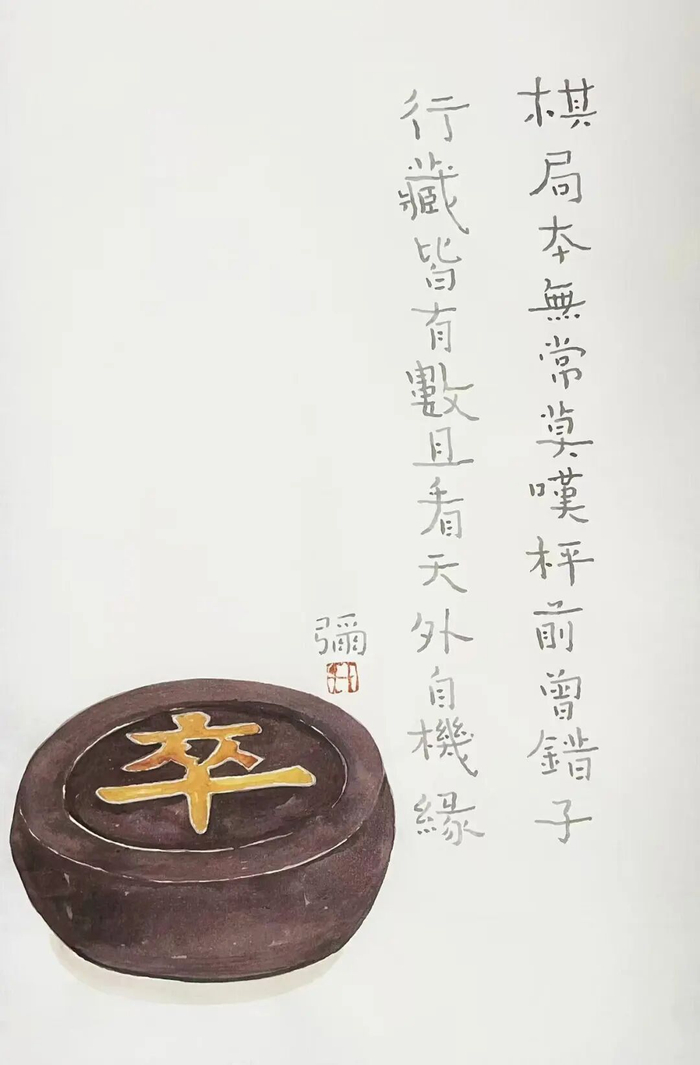 棋局本無常莫嘆枰前曾錯子
行藏皆有數且看天外自機緣
彌
卒